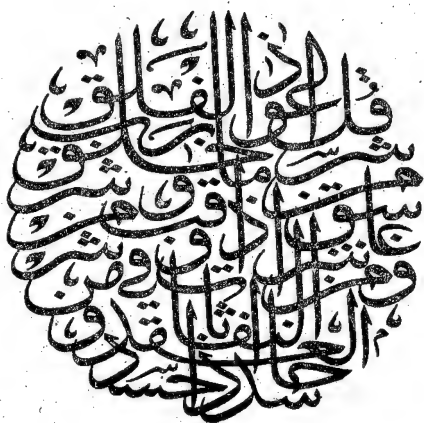 قل اعوذ برب الفلق
من شر ما خلق
ومن شر غاسق اذا وقب
ومن شر النفاثات فى العقد
ومن شر حاسد اذا حسد